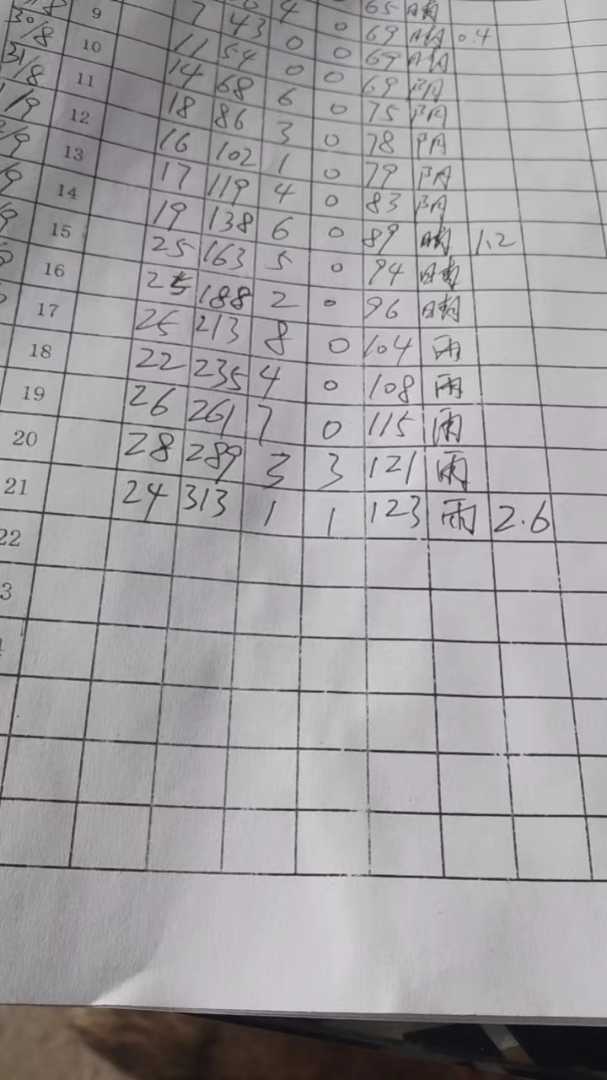 4 0 65 晴
7 43 0 0 69 晴 0.4
30/8 9 11 54 0 0 69 晴
31/8 10 14 68 6 0 75 阴
/9 11 18 86 3 0 78 阴
/9 12 16 102 1 0 79 阴
/9 13 17 119 4 0 83 阴
14 19 138 6 0 89 晴 1.2
15 25 163 5 0 94 晴
16 25 188 2 0 96 晴
17 25 213 8 0 104 雨
18 22 235 4 0 108 雨
19 26 261 7 0 115 雨
20 28 289 3 3 121 雨
21 24 313 1 1 123 雨 2.6
22
3